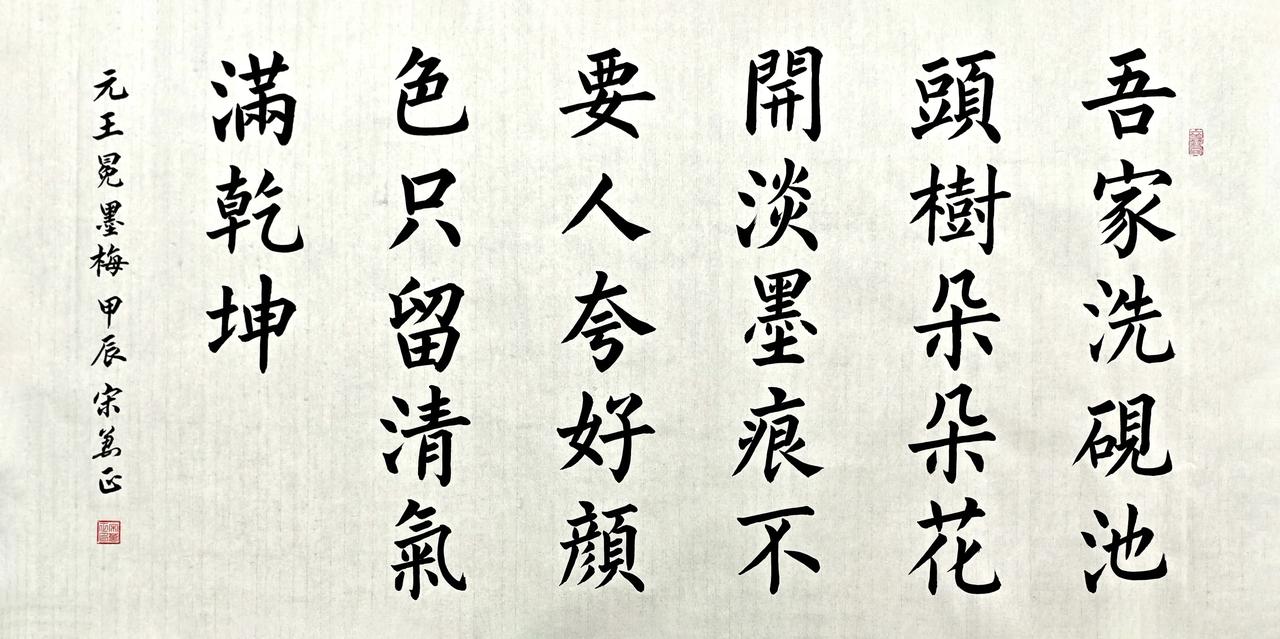 吾家洗硯池
頭樹朵朵花
開淡墨痕不
要人夸好顏
色只留清氣
滿乾坤
元王冕墨梅甲辰宋萬正